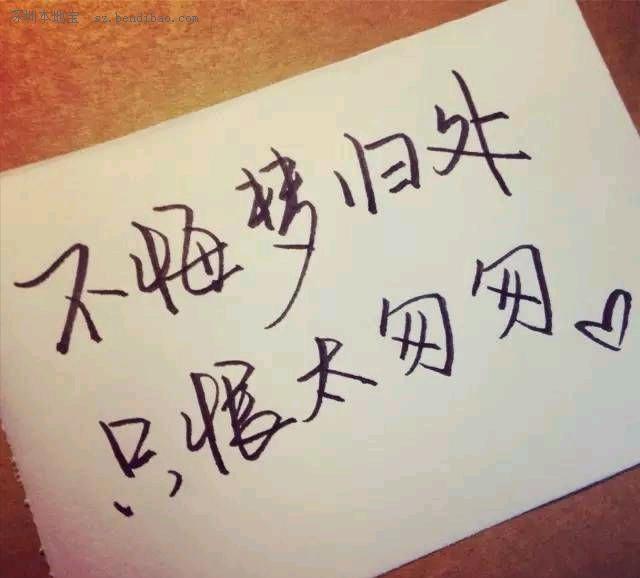 深圳本地宝 sz.bendibao.com
不悔梦归处
只恨太匆匆♡